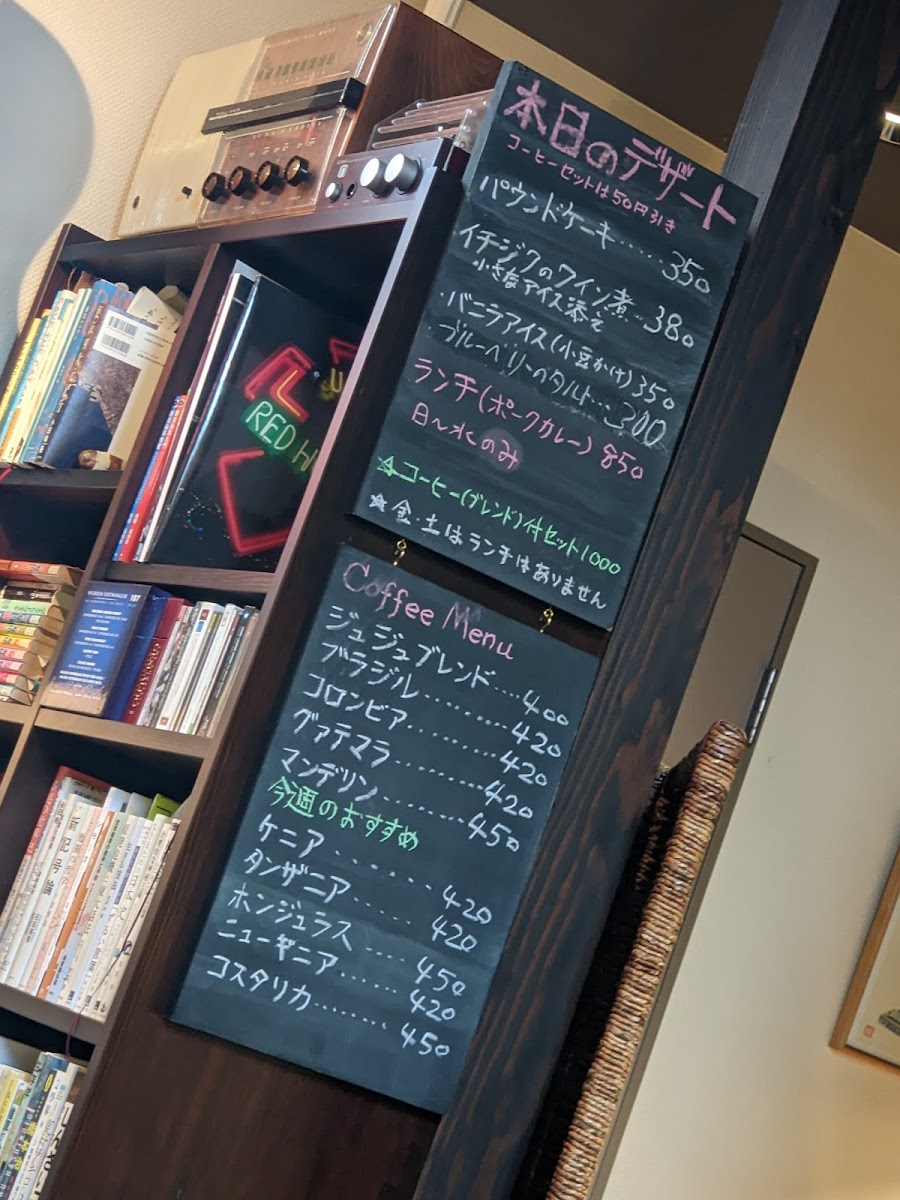 本日のデザート
コーヒーセットは50円引き
パウンドケーキ……350
イチジクのワイン煮‥380
小さなアイス添え
バニラアイス(小豆かけ)350
ブルーベリーのタルト…300
ランチ(ポークカレー)850
日〜水のみ
☆コーヒー(ブレンド)付セット1000
☆金・土はランチはありません
Coffee Menu
ジュジュブレンド....400
ブラジル.........420
コロンビア.........420
グァテマラ.........420
マンデリン........450
今週のおすすめ
ケニア.......420
タンザニア......420
ホンジュラス.....450
ニューギニア......420
コスタリカ........450
RED H